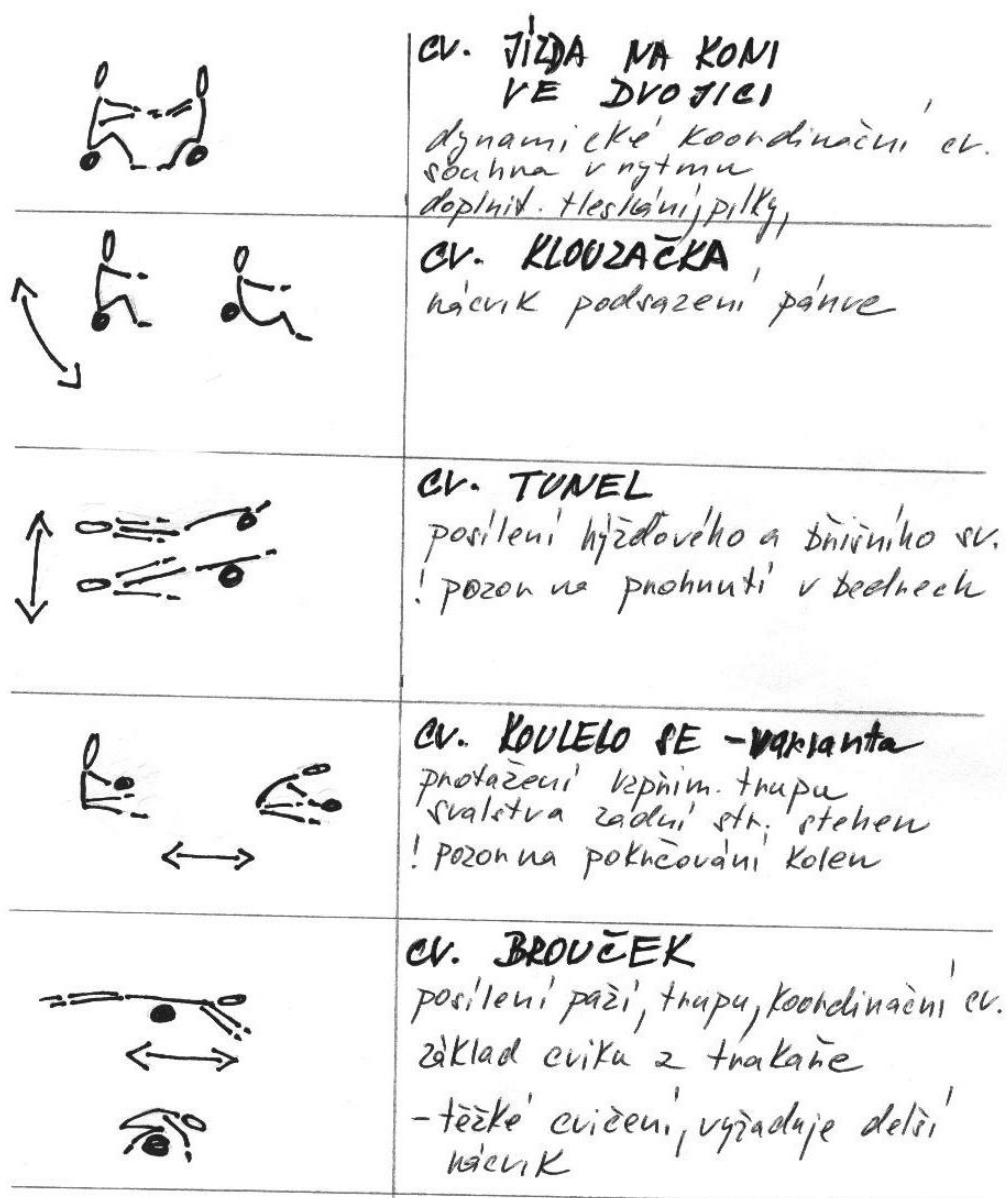 cv. JÍZDA NA KONI
VE DVOJICI
dynamické koordinační cv.
souhra v rytmu
doplnit. tleskání, pilky,
cv. KLOUZAČKA
nácvik podsazení pánve
cv. TUNEL
posílení hýžďového a břišního sv.
! pozor na prohnutí v bedrech
cv. KOULELO SE - varianta
protažení vzpřim. trupu
svalstva zadní str. stehen
! pozor na pokrčování kolen
cv. BROUČEK
posílení paží, trupu, koordinační cv.
základ cviku z trakaře
- těžké cvičení, vyžaduje delší
nácvik